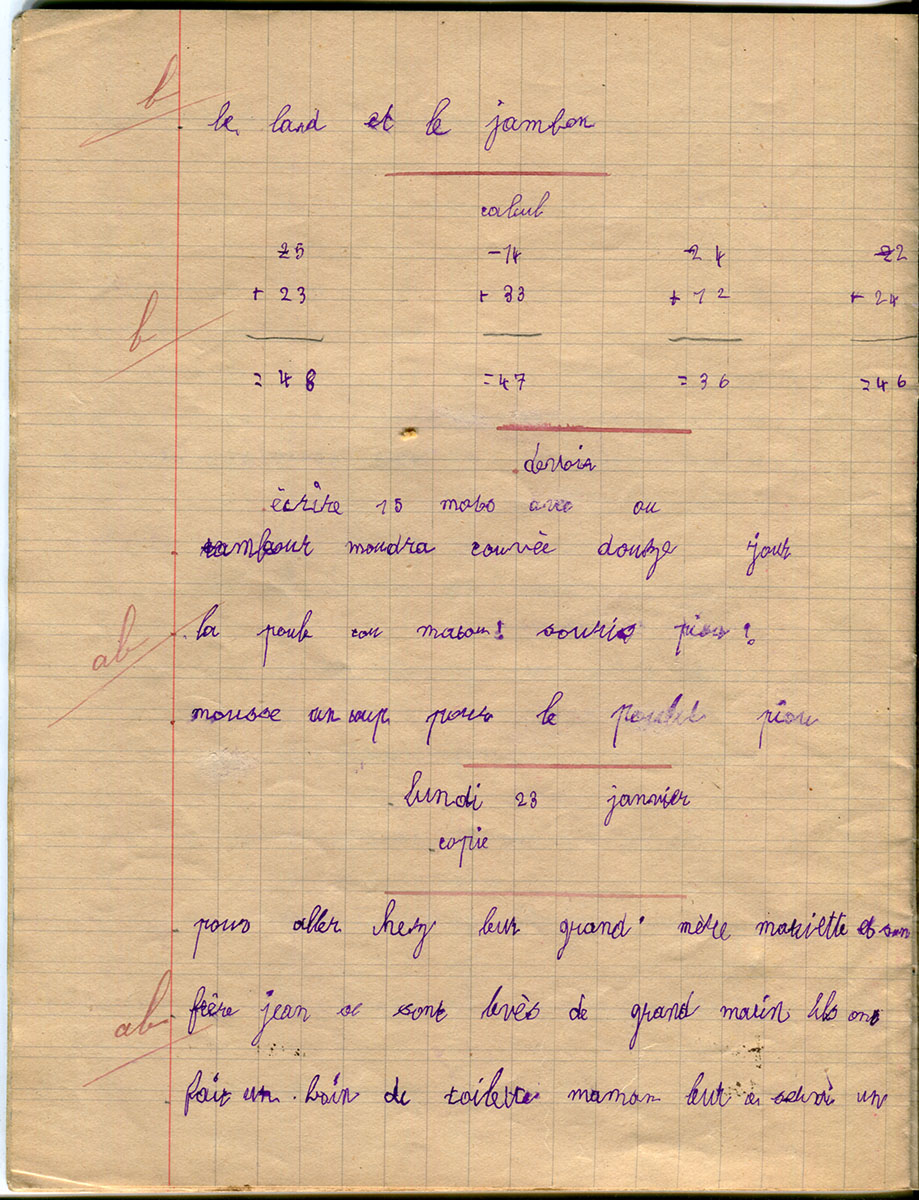 b
le lard et le jambon
calcul
25 -14 24 22
+ 23 + 33 + 12 + 24
b
= 48 = 47 = 36 = 46
devoir
écrire 15 mots avec ou
tambour moudra couvée douze jour
ab
la poule cou matou! souris piou?
mousse un loup pour le poulet piou
lundi 23 janvier
copie
pour aller chez leur grand' mère mariette et son
ab
frère jean se sont levés de grand matin ils ont
fait un bain de toilette maman leur a servi un